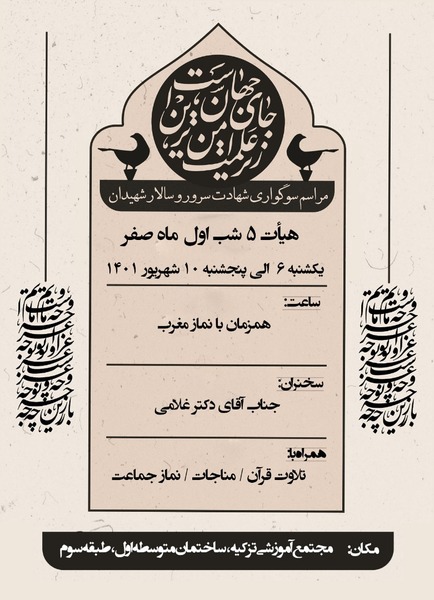 زیر علمت امن‌ترین جای جهان است
مراسم سوگواری شهادت سرور و سالار شهیدان
هیأت ۵ شب اول ماه صفر
یکشنبه ۶ الی پنجشنبه ۱۰ شهریور ۱۴۰۱
ساعت:
همزمان با نماز مغرب
سخنران:
جناب آقای دکتر غلامی
همراه با:
تلاوت قرآن / مناجات / نماز جماعت
مکان: مجتمع آموزشی تزکیه، ساختمان متوسطه اول، طبقه سوم